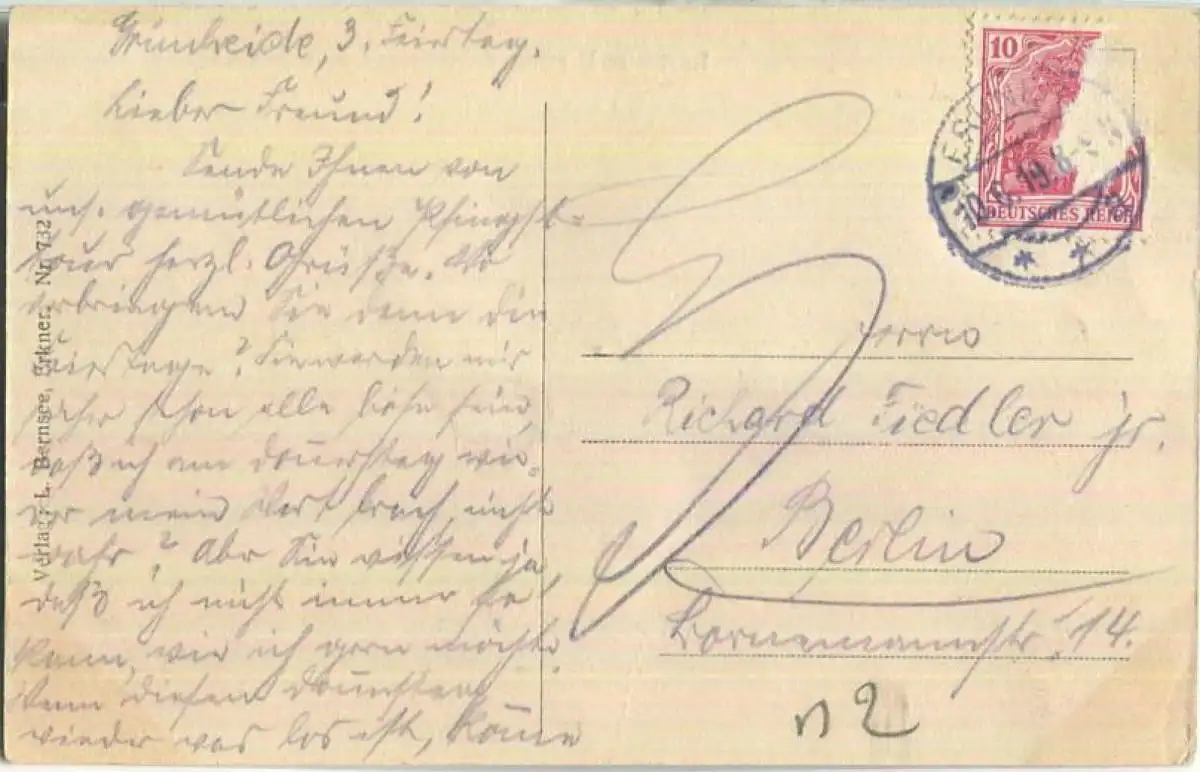 Grünheide, 3. Feiertag.
Lieber Freund!
Sende Ihnen von
uns. gemütlichen Pfingst-
tour herzl. Grüße. Wo
verbringen Sie denn die
Feiertage? Sie werden mir
sicher schon alle böse sein,
daß ich am Donnerstag wie-
der mein Wort brach, nicht
wahr? Aber Sie wissen ja
daß ich nicht immer so
kann, wie ich gern möchte.
Wenn diesen Donnerstag
wieder was los ist, komme
Verlag: L. Bernsee, Erkner. Nr. 732
10
DEUTSCHES REICH
10.6.19.8-
Herrn
Richard Fiedler jr.
Berlin
Bornemannstr. 14.
n 2